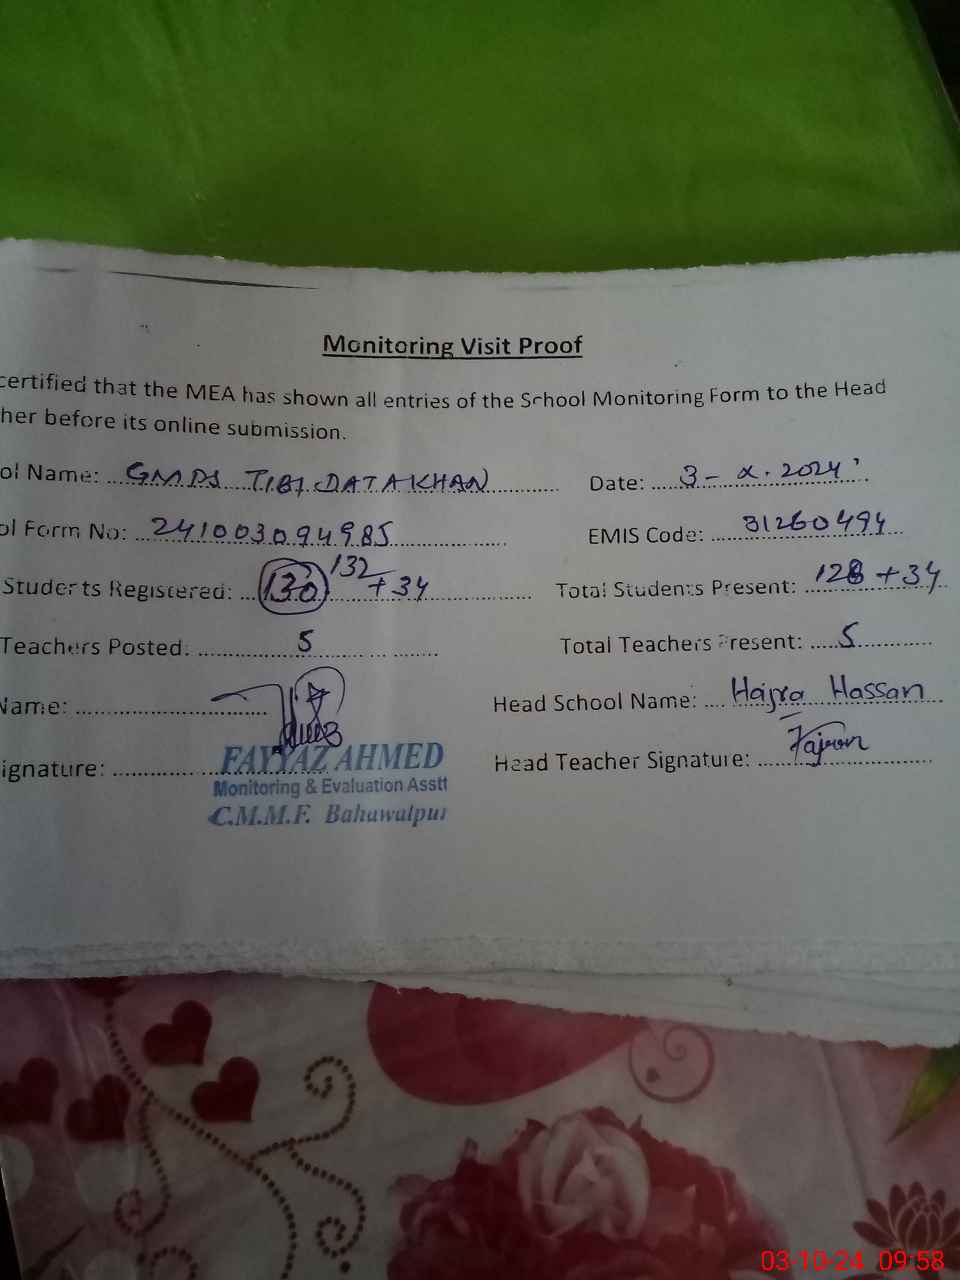 Monitoring Visit Proof
certified that the MEA has shown all entries of the School Monitoring Form to the Head
her before its online submission.
ol Name: GMPS TIBI DATAKHAN Date: 3-X.2024
ol Form No: 241003094985 EMIS Code: 31260494
Students Registered: 130 132 +34 Total Students Present: 128 +34
Teachers Posted: 5 Total Teachers Present: 5
Name: Head School Name: Hajra Hassan
ignature: Head Teacher Signature:
FAYYAZ AHMED
Monitoring & Evaluation Asstt
C.M.M.F. Bahawalpur
03-10-24 09:58